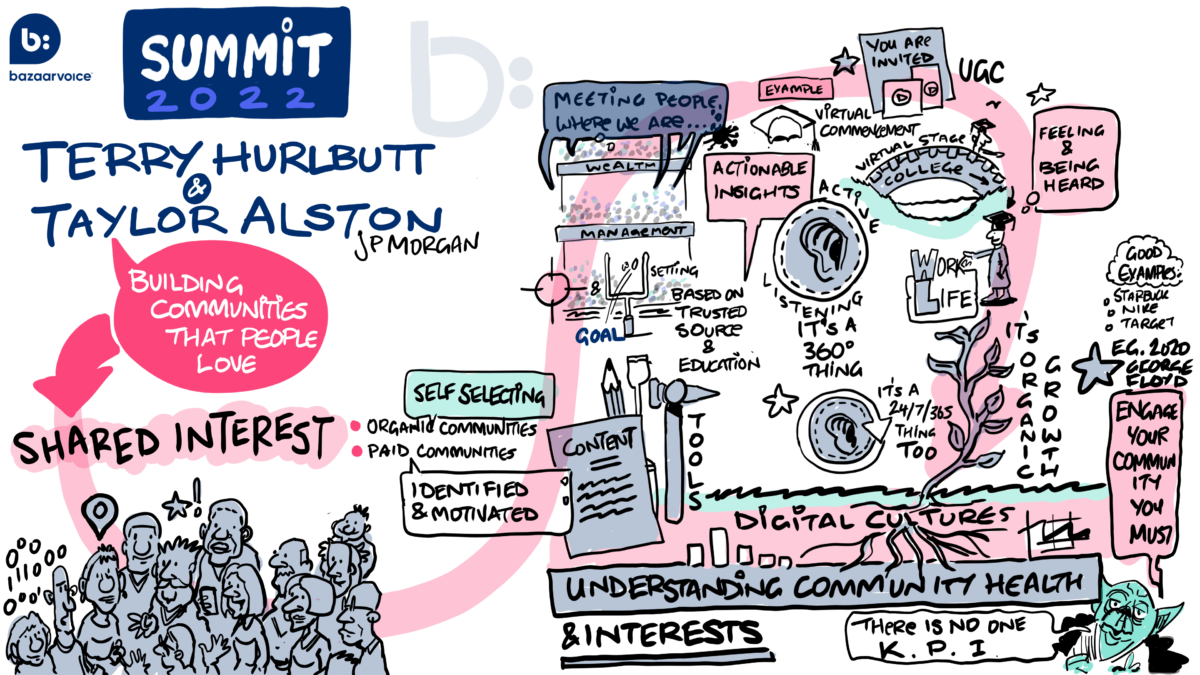 b:
bazaarvoice
SUMMIT
2022
b:
TERRY HURLBUTT
&
TAYLOR ALSTON
JP MORGAN
BUILDING
COMMUNITIES
THAT PEOPLE
LOVE
SHARED INTEREST
SELF SELECTING
ORGANIC COMMUNITIES
PAID COMMUNITIES
IDENTIFIED
& MOTIVATED
!
MEETING PEOPLE,
WHERE WE ARE....
WEALTH
MANAGEMENT
&
SETTING
GOAL
BASED ON
TRUSTED
SOURCE
&
EDUCATION
CONTENT
TOOLS
ACTIONABLE
INSIGHTS
EXAMPLE
VIRTUAL
COMMENCEMENT
YOU ARE
INVITED
UGC
VIRTUAL STAGE
COLLEGE
FEELING
&
BEING
HEARD
ACTIVE
LISTENING
IT'S A
360°
THING
IT'S A
24/7/365
THING
TOO
WORK
LIFE
IT'S ORGANIC
GROWTH
GOOD
EXAMPLES:
STARBUCK
NIKE
TARGET
EG. 2020
GEORGE
FLOYD
ENGAGE
YOUR
COMMUN
ITY
YOU
MUST
DIGITAL CULTURES
UNDERSTANDING COMMUNITY HEALTH
& INTERESTS
THERE IS NO ONE
K.P.I.